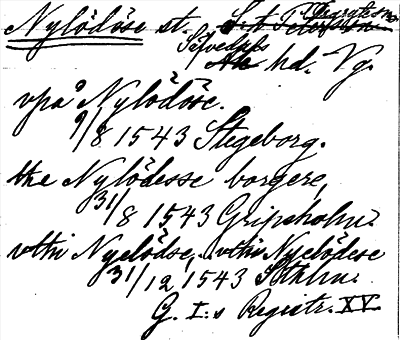 Nylödöse st.
Sefvedals
hd. Vg.
vpå Nylödöse.
9/8 1543 Stegeborg.
the Nylödesse borgere,
31/8 1543 Gripsholm.
vthi Nyelödse, vthi Nyelödese
31/12 1543 Sthlm.
G. I:s Registr. XV.